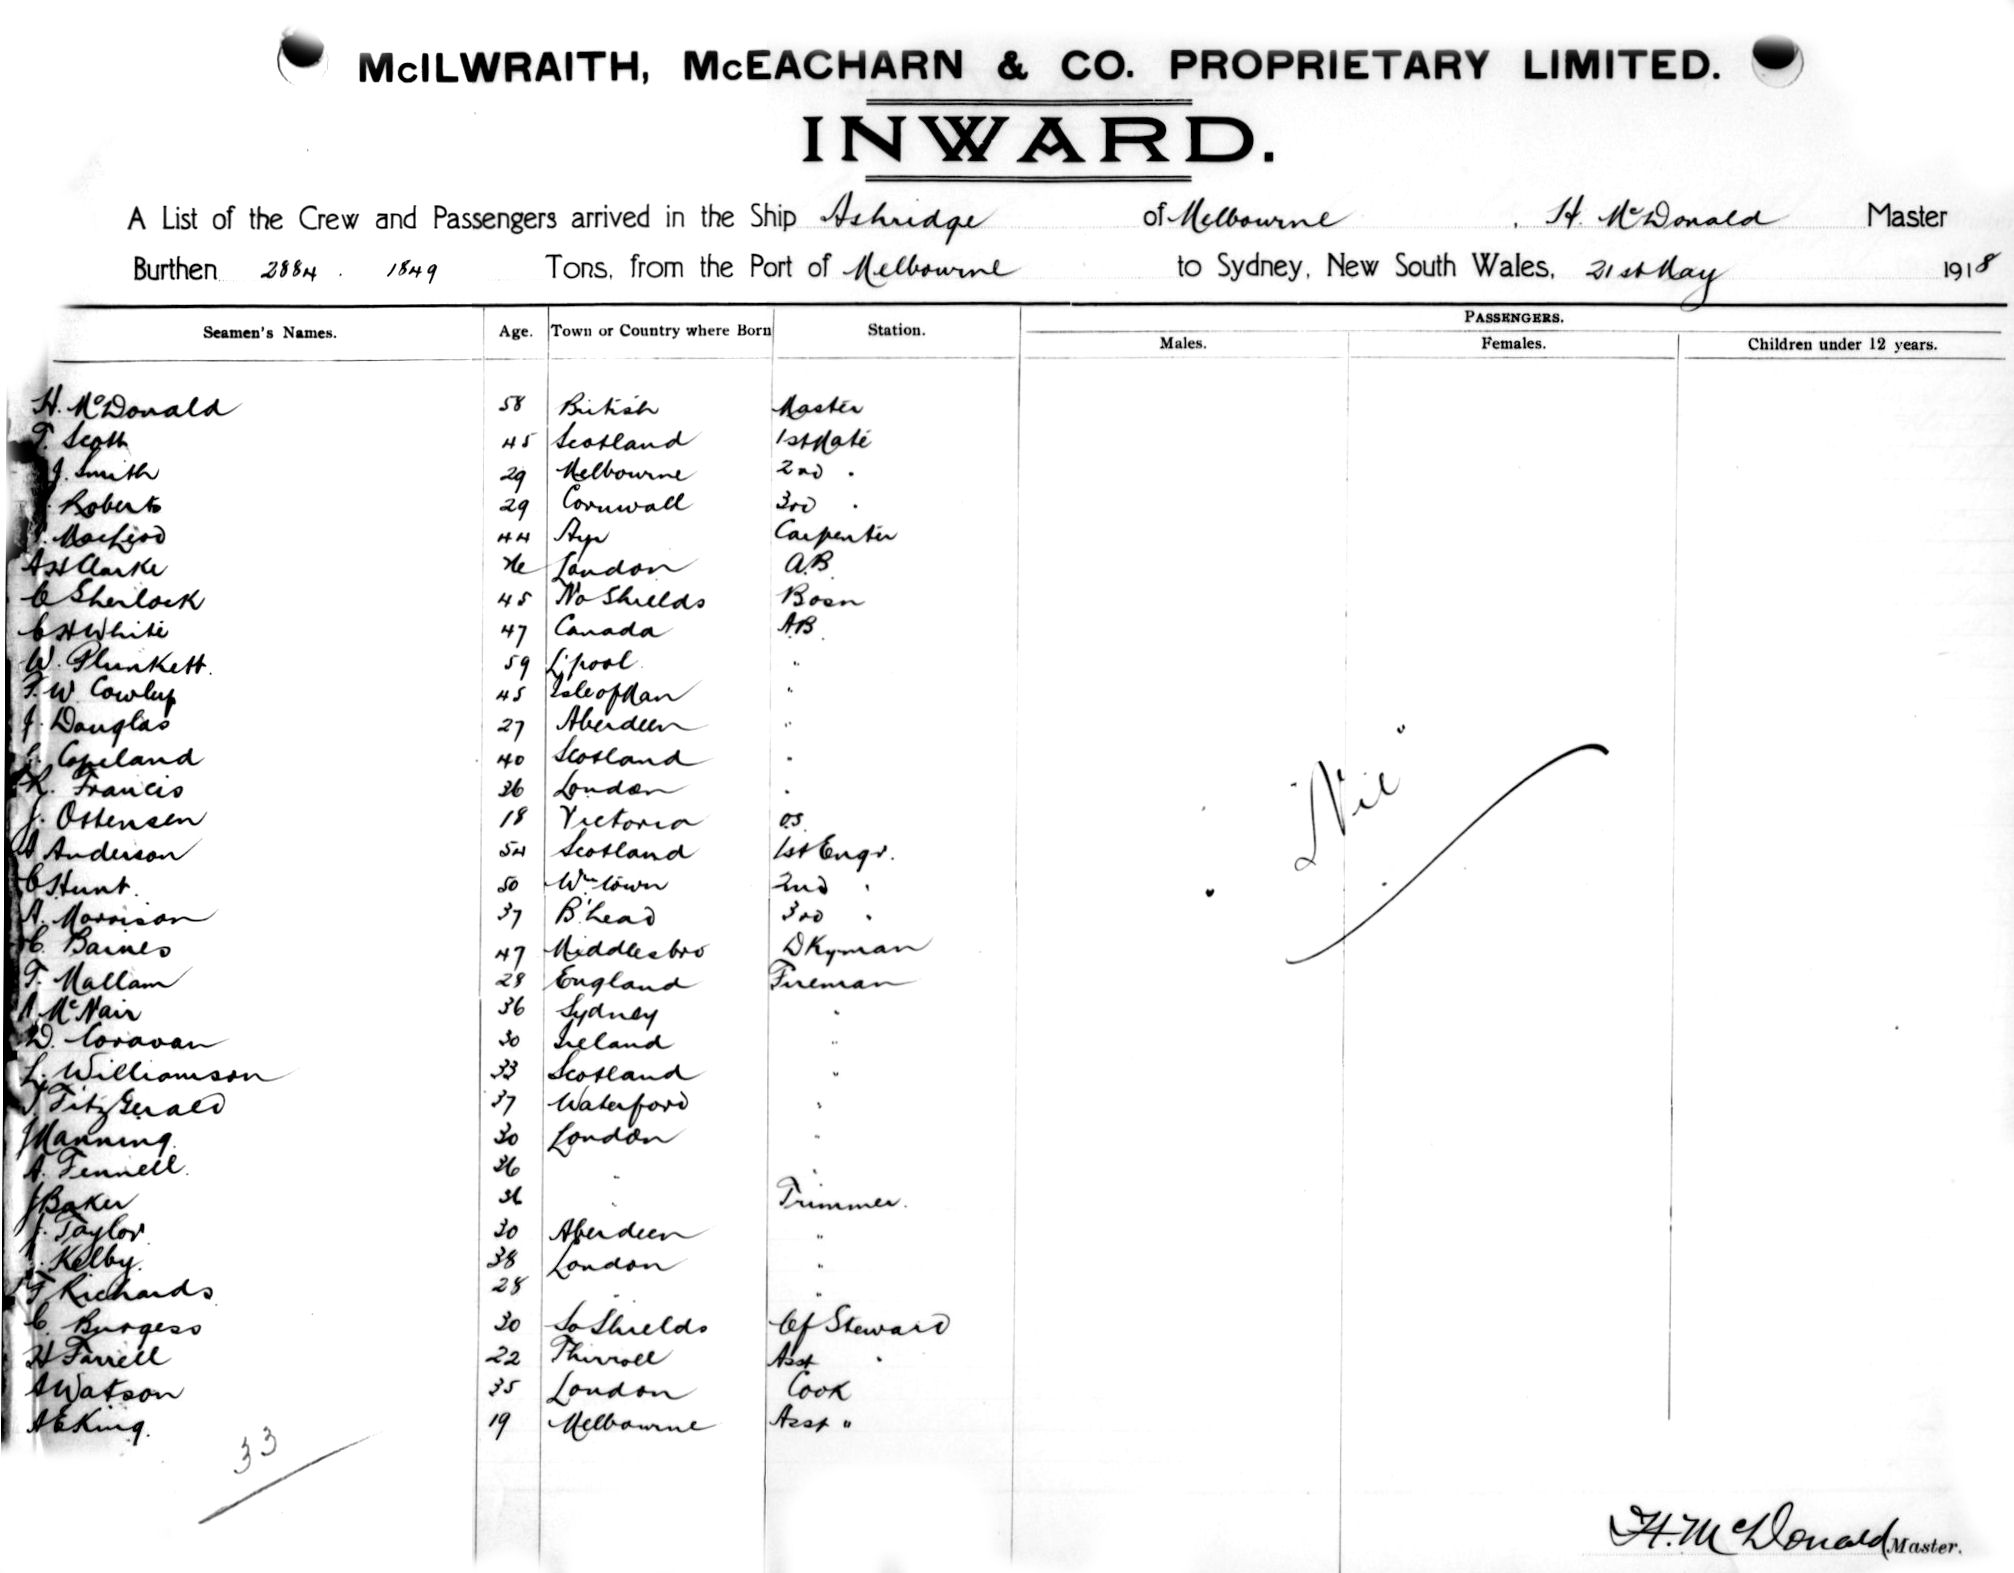 McILWRAITH, McEACHARN & CO. PROPRIETARY LIMITED.
INWARD.
A List of the Crew and Passengers arrived in the Ship Ashridge of Melbourne, H. McDonald Master
Burthen 2884 . 1849 Tons, from the Port of Melbourne to Sydney, New South Wales, 21st May 1918
PASSENGERS.
Seamen's Names. Age. Town or Country where Born Station. Males. Females. Children under 12 years.
H. McDonald 58 British Master
T. Scott 45 Scotland 1st Mate
J. Smith 29 Melbourne 2nd "
Roberts 29 Cornwall 3rd "
MacLeod 44 Ayr Carpenter
A H Clarke London A.B.
C Sherlock 45 No Shields Bosn
C H White 47 Canada A.B.
W. Plunkett. 59 L'pool "
F. W. Cowley 45 Isle of Man "
J. Douglas 27 Aberdeen "
Copeland 40 Scotland "
R. Francis 36 London "
J. Ostensen 18 Victoria O.S.
A Anderson 54 Scotland 1st Engr.
C Hunt. 50 Wmtown 2nd "
A. Morrison 37 B'head 3rd "
C. Baines 47 Middlesbro D Kyman
T. Mallam 28 England Fireman
A McNair 36 Sydney "
D. Coravan 30 Ireland "
L. Williamson 33 Scotland "
FitzGerald 37 Waterford "
J Manning 30 London "
A. Fennell 36 " "
J Baker 36 " Trimmer.
J. Taylor 30 Aberdeen "
Kelby. 38 London "
F Richards 28 " "
C. Burgess 30 So Shields Cf Steward
H Farrell 22 Thirroll Asst "
A Watson 35 London Cook
A E King. 19 Melbourne Asst "
"Nil"
33
H. McDonald Master.